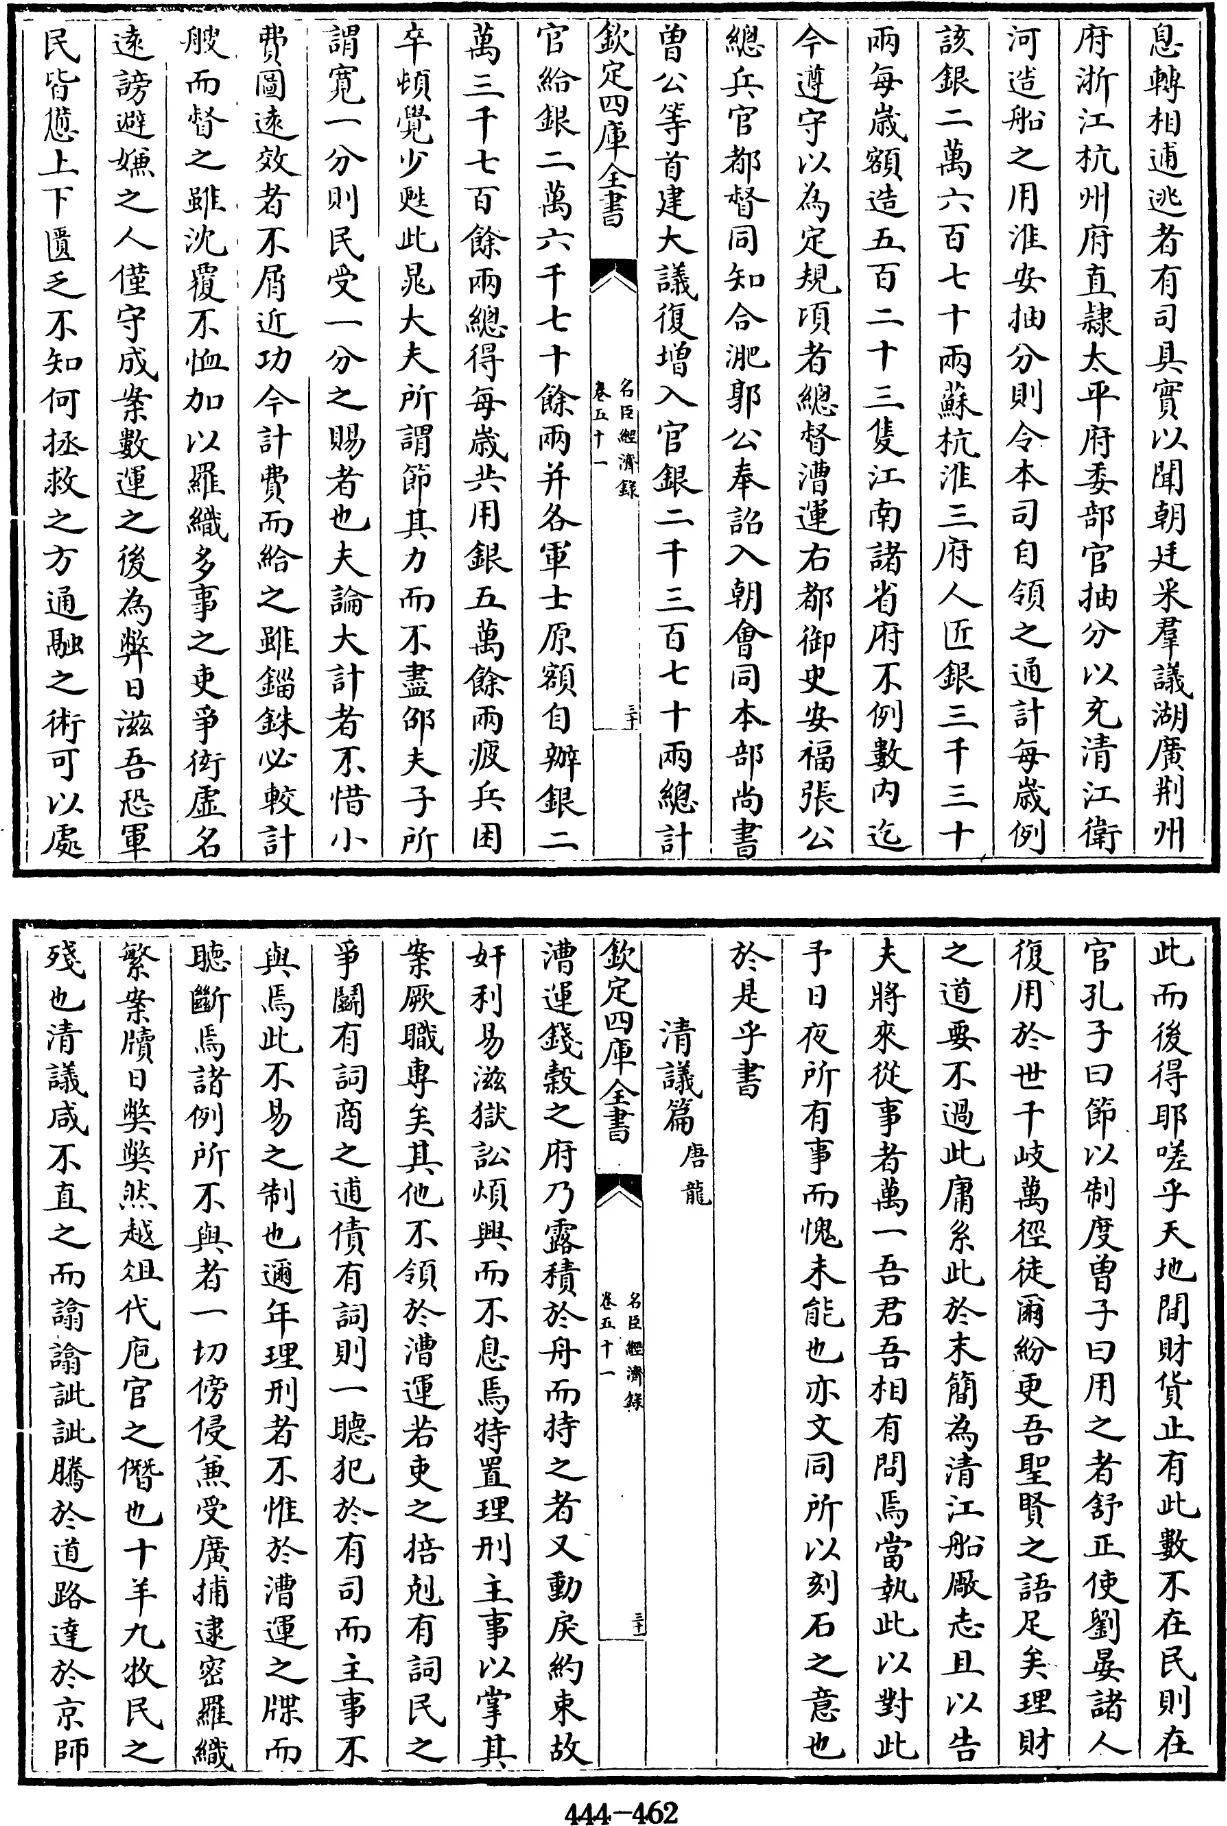 息轉相逋逃者有司具實以聞朝廷采羣議湖廣荆州
府浙江杭州府直隷太平府委部官抽分以充清江衛
河造船之用淮安抽分則令本司自領之通計每歳例
該銀二萬六百七十兩蘇杭淮三府人匠銀三千三十
兩每歳額造五百二十三隻江南諸省府不例數内迄
今遵守以為定規項者總督漕運右都御史安福張公
總兵官都督同知合淝郭公奉詔入朝會同本部尚書
曽公等首建大議復增入官銀二千三百七十兩總計
欽定四庫全書
名臣經濟録
卷五十一
三十
官給銀二萬六千七十餘兩并各軍士原額自辦銀二
萬三千七百餘兩總得每歳共用銀五萬餘兩疲兵困
卒頓覺少甦此晁大夫所謂節其力而不盡邵夫子所
謂寛一分則民受一分之賜者也夫論大計者不惜小
費圖逺效者不屑近功今計費而給之雖錙銖必較計
艘而督之雖沈覆不恤加以羅織多事之吏爭衒虚名
逺謗避嫌之人僅守成案數運之後為弊日滋吾恐軍
民皆憊上下匱乏不知何拯救之方通融之術可以處
此而後得耶嗟乎天地間財貨止有此數不在民則在
官孔子曰節以制度曽子曰用之者舒正使劉晏諸人
復用於世千岐萬徑徒爾紛更吾聖賢之語足矣理財
之道要不過此庸系此於末簡為清江船厰志且以告
夫將來從事者萬一吾君吾相有問焉當執此以對此
予日夜所有事而愧未能也亦文同所以刻石之意也
於是乎書
清議篇 唐龍
欽定四庫全書
名臣經濟録
卷五十一
三十一
漕運錢榖之府乃露積於舟而持之者又動戾約束故
奸利易滋獄訟煩興而不息焉特置理刑主事以掌其
案厥職專矣其他不領於漕運若吏之掊尅有詞民之
爭鬬有詞商之逋債有詞則一聽犯於有司而主事不
與焉此不易之制也邇年理刑者不惟於漕運之牒而
聽斷焉諸例所不與者一切傍侵兼受廣捕逮密羅織
繁案牘日獘獘然越俎代庖官之僭也十羊九牧民之
殘也清議咸不直之而譾譾訿訿騰於道路達於京師
444-462